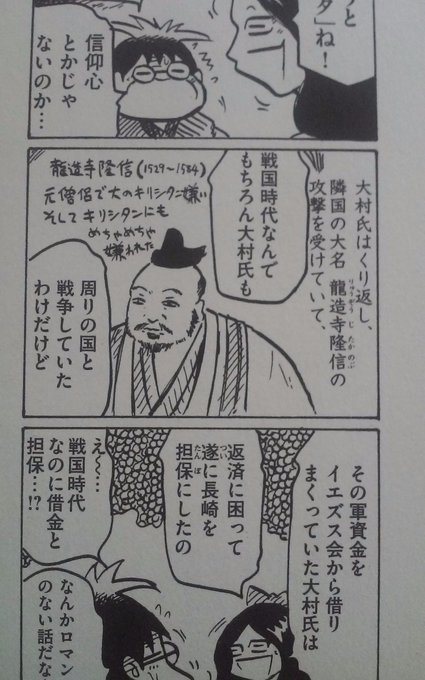 タ」ね!
信仰心
とかじゃ
ないのか…
大村氏はくり返し、
隣国の大名 龍造寺隆信の
りゅうぞうじたかのぶ
攻撃を受けていて、
戦国時代なんで
もちろん大村氏も
龍造寺隆信(1529〜1584)
元僧侶で大のキリシタン嫌い
そしてキリシタンにも
めちゃめちゃ
嫌われた
周りの国と
戦争していた
わけだけど
その軍資金を
イエズス会から借り
まくっていた大村氏は
返済に困って
遂に長崎を
つい
担保にしたの
たんぽ
え〜…
戦国時代
なのに借金と
担保…!?
なんかロマン
のない話だな